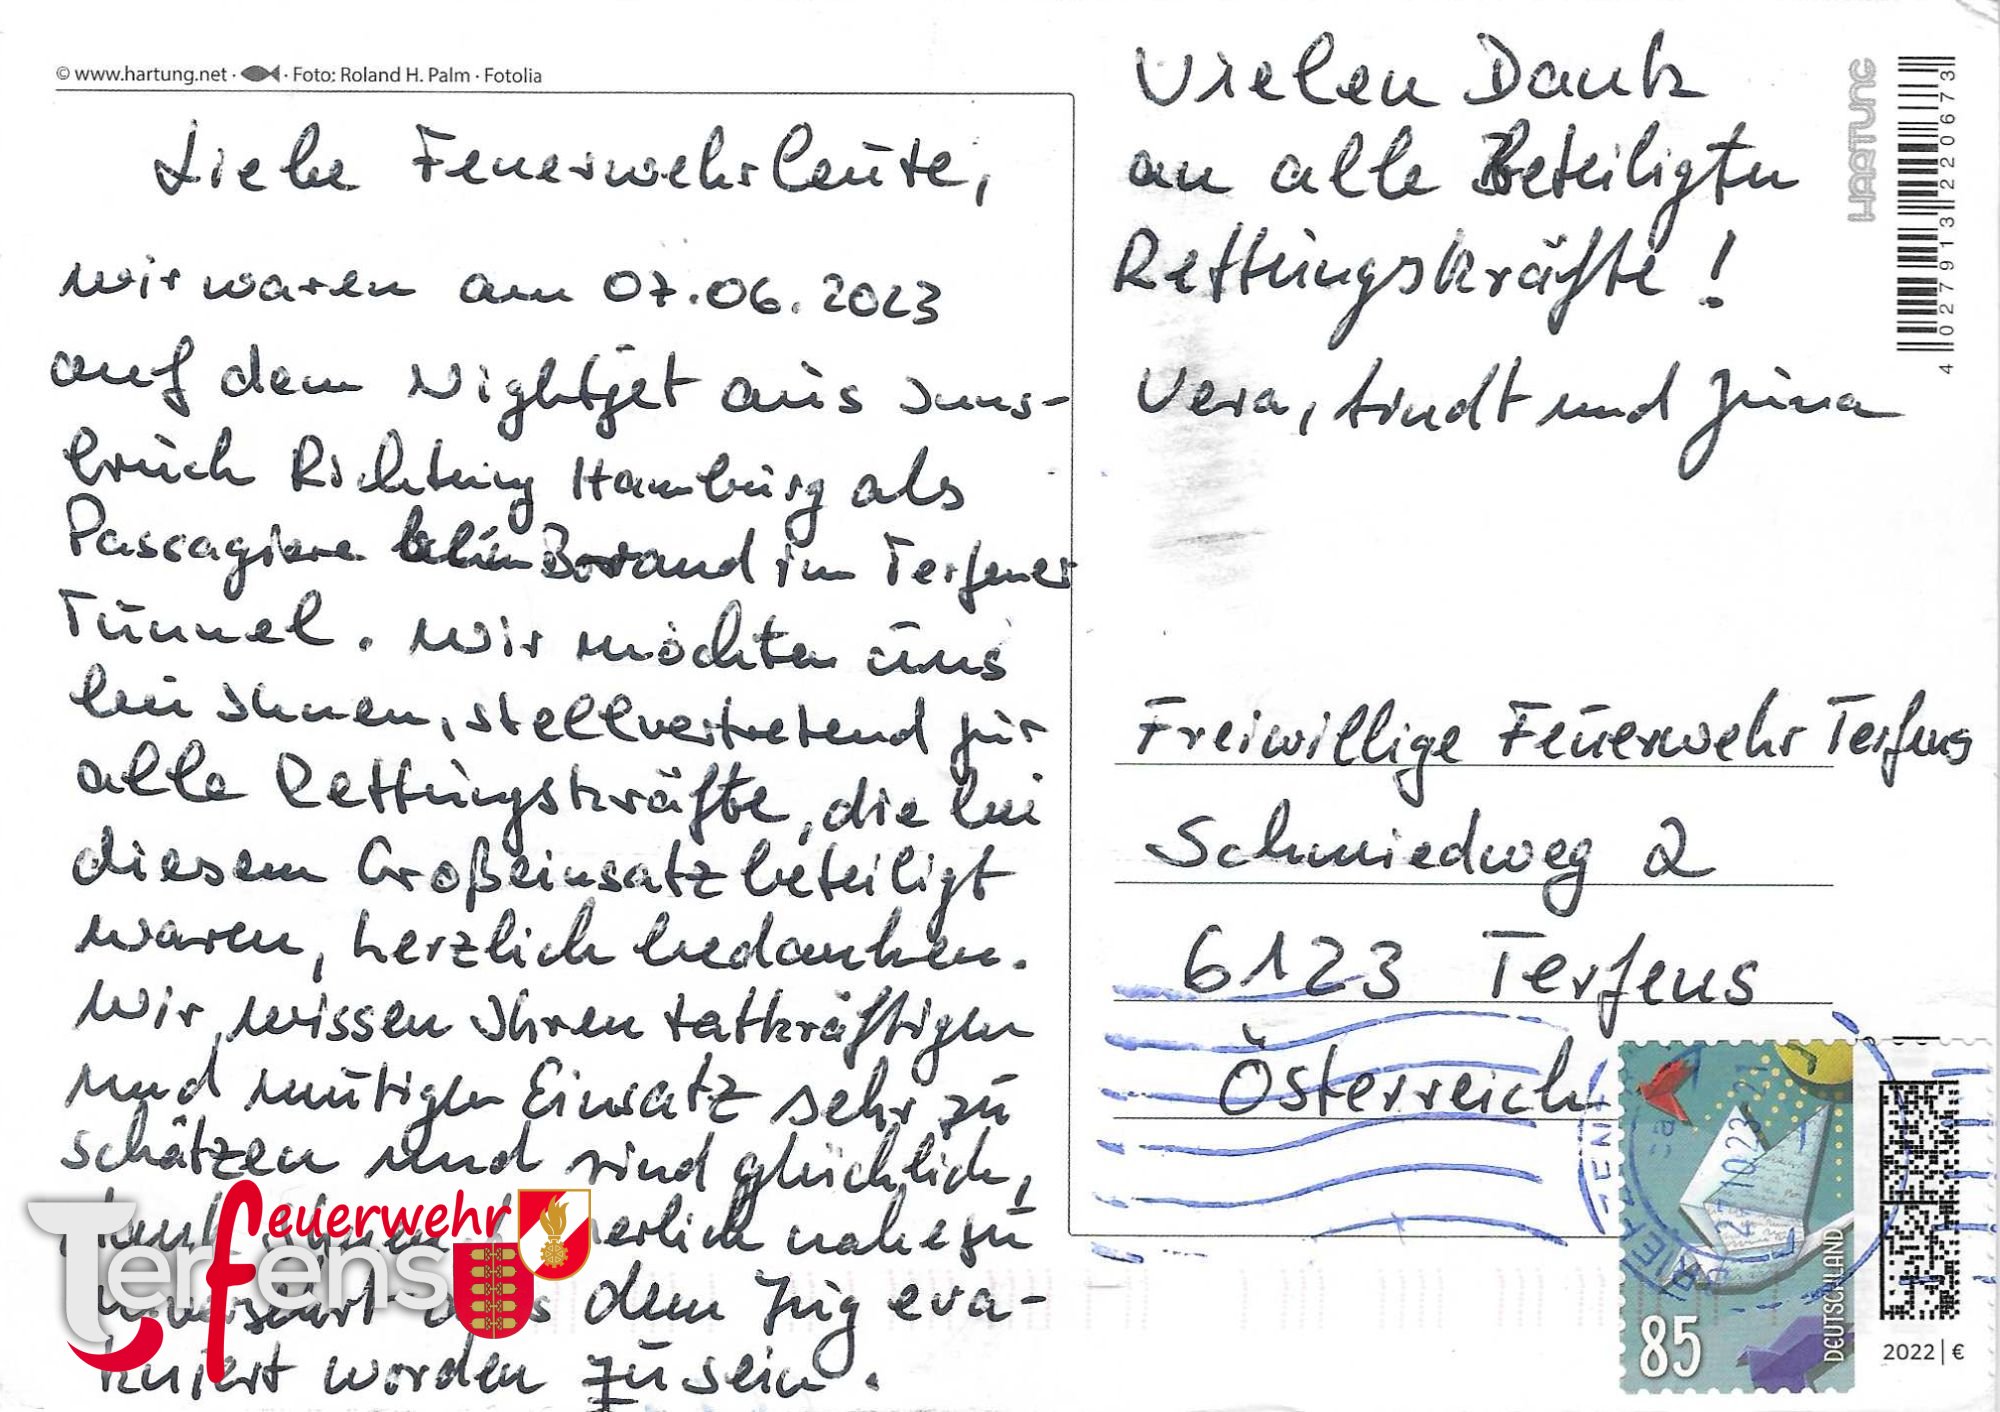 © www.hartung.net · · Foto: Roland H. Palm · Fotolia
Liebe Feuerwehrleute,
wir waren am 07.06.2023
auf dem Nightjet aus Inns-
bruck Richtung Hamburg als
Passagiere beim Brand im Terfener
Tunnel. Wir möchten uns
bei Ihnen, stellvertretend für
alle Rettungskräfte, die bei
diesem Großeinsatz beteiligt
waren, herzlich bedanken.
Wir wissen Ihren tatkräftigen
und mutigen Einsatz sehr zu
schätzen und sind glücklich,
dank Ihnen nahezu
unversehrt aus dem Zug eva-
kuiert worden zu sein.
Vielen Dank
an alle Beteiligten
Rettungskräfte!
Vera, und
HARTUNG
4 027913 220673
Freiwillige Feuerwehr Terfens
Schmiedweg 2
6123 Terfens
Österreich
BRIEF
85
DEUTSCHLAND
2022 | €
Feuerwehr
Terfens